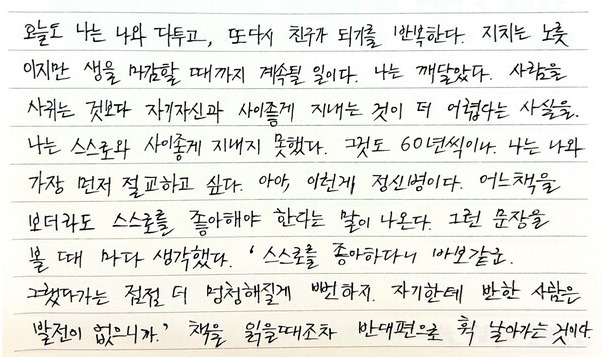 오늘도 나는 나와 다투고, 또다시 친구가 되기를 반복한다. 지치는 노릇
이지만 생을 마감할 때까지 계속될 일이다. 나는 깨달았다. 사람을
사귀는 것보다 자기자신과 사이좋게 지내는 것이 더 어렵다는 사실을.
나는 스스로와 사이좋게 지내지 못했다. 그것도 60년씩이나. 나는 나와
가장 먼저 절교하고 싶다. 아아, 이런게 정신병이다. 어느책을
보더라도 스스로를 좋아해야 한다는 말이 나온다. 그런 문장을
볼 때 마다 생각했다. '스스로를 좋아하다니 바보같군.
그랬다가는 점점 더 멍청해질게 뻔하지. 자기한테 반한 사람은
발전이 없으니까.' 책을 읽을때조차 반대편으로 획 날아가는 것이다.